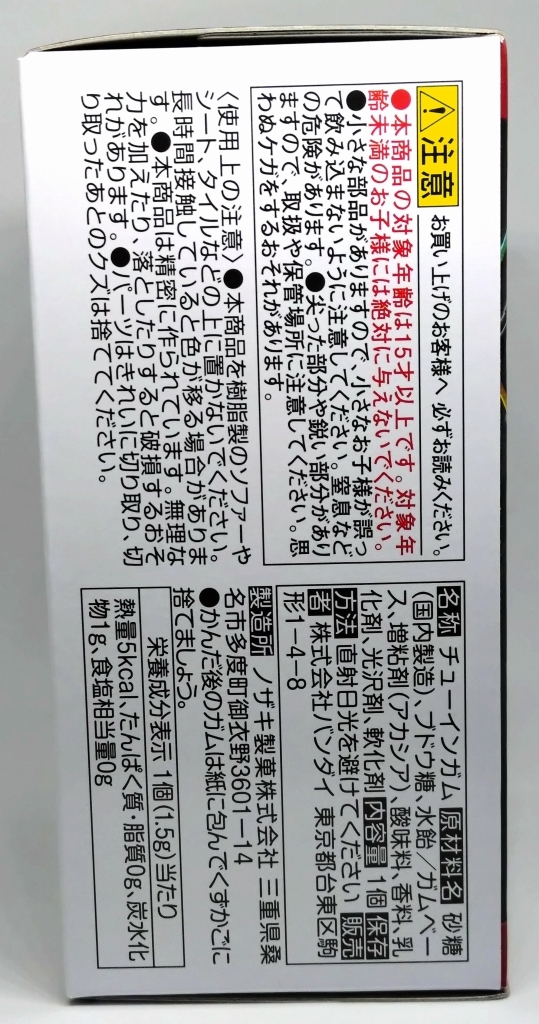 注意 お買い上げのお客様へ 必ずお読みください。
●本商品の対象年齢は15才以上です。対象年
齢未満のお子様には絶対に与えないでください。
●小さな部品がありますので、小さなお子様が誤っ
て飲み込まないように注意してください。窒息など
の危険があります。●尖った部分や鋭い部分があり
ますので、取扱や保管場所に注意してください。思
わぬケガをするおそれがあります。
〈使用上の注意〉●本商品を樹脂製のソファーや
シート、タイルなどの上に置かないでください。
長時間接触していると色が移る場合がありま
す。●本商品は精密に作られています。無理な
力を加えたり、落としたりすると破損するおそ
れがあります。●パーツはきれいに切り取り、切
り取ったあとのクズは捨ててください。
名称 チューインガム 原材料名 砂糖
(国内製造)、ブドウ糖、水飴/ガムベー
ス、増粘剤(アカシア)、酸味料、香料、乳
化剤、光沢剤、軟化剤 内容量 1個 保存
方法 直射日光を避けてください 販売
者 株式会社バンダイ 東京都台東区駒
形1-4-8
製造所 ノザキ製菓株式会社 三重県桑
名市多度町御衣野3601-14
●かんだ後のガムは紙に包んでくずかごに
捨てましょう。
栄養成分表示 1個(1.5g)当たり
熱量5kcal、たんぱく質・脂質0g、炭水化
物1g、食塩相当量0g